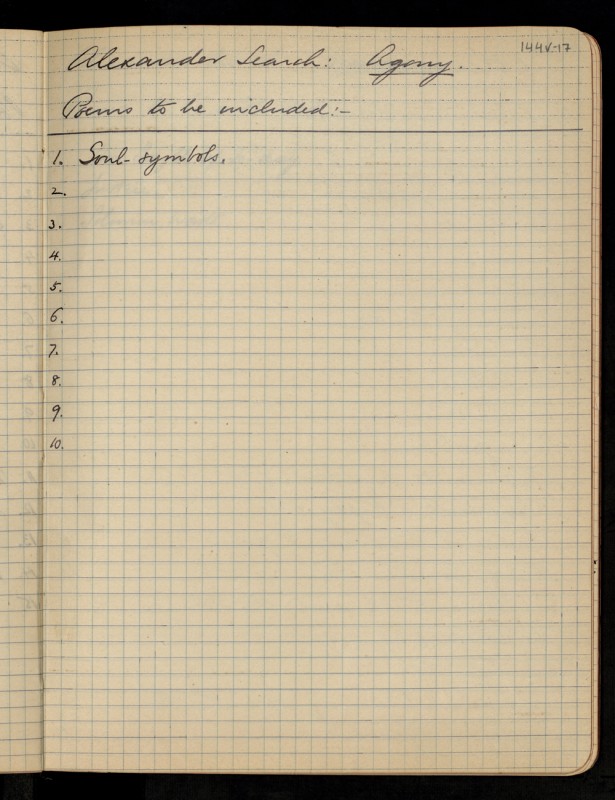 144V-17
Alexander Search: Agony.
Poems to be included:-
1. Soul-symbols.
2.
3.
4.
5.
6.
7.
8.
9.
10.